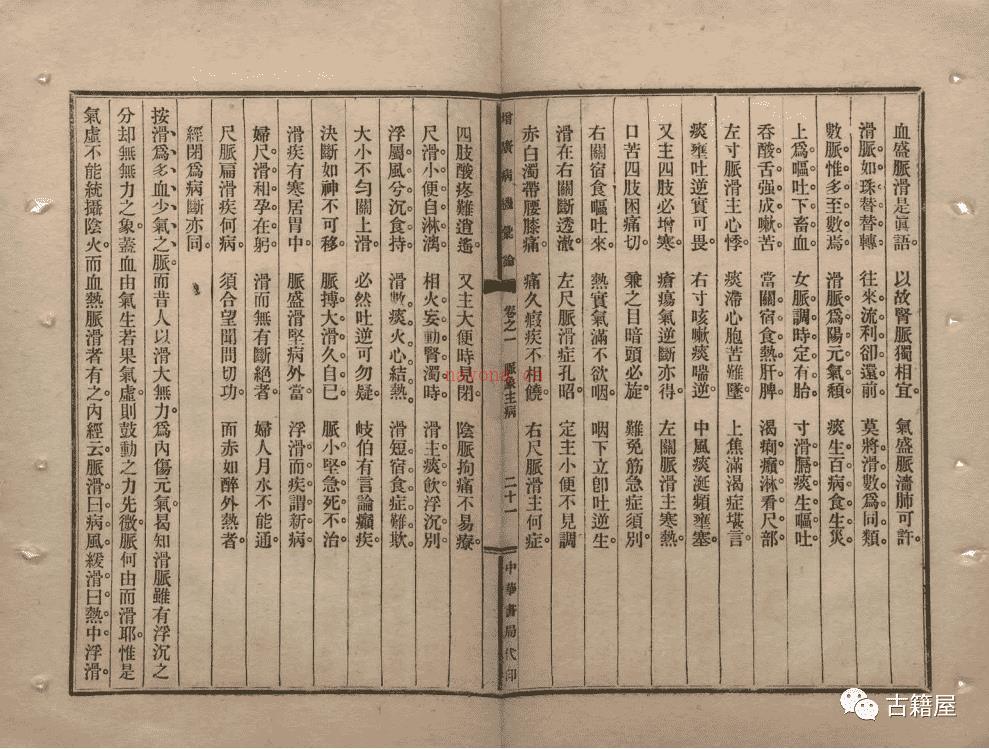 血盛脈滑是眞語。以故腎脈獨相宜。氣盛脈濇肺可許。
滑脈如珠替替轉。往來流利卻還前。莫將滑數爲同類。
數脈惟多至數焉。滑脈爲陽元氣頹。痰生百病食生災。
上爲嘔吐下畜血。女脈調時定有胎。寸滑膈痰生嘔吐。
吞酸舌强成嗽苦。當關宿食熱肝脾。渴痢癲淋看尺部。
左寸脈滑主心悸。痰滯心胞苦難墜。上焦滿渴症堪言。
痰壅吐逆實可畏。右寸咳嗽痰喘逆。中風痰涎頻壅塞。
又主四肢必增寒。瘡瘍氣逆斷亦得。左關脈滑主寒熱。
口苦四肢困痛切。兼之目暗頭必旋。難免筋急症須別。
右關宿食嘔吐來。熱實氣滿不欲咽。咽下立卽吐逆生。
滑在右關斷透澈。左尺脈滑症孔昭。定主小便不見調。
赤白濁帶腰膝痛。痛久瘕疾不相饒。右尺脈滑主何症。
增廣病機彙論 卷之一 脈象主病 二十一 中華書局代印
四肢酸疼難逍遙。又主大便時易閉。陰脈拘痛不易療。
尺滑小便自淋漓。相火妄動腎濁時。滑主痰飲浮沉別。
浮屬風兮沉食持。滑數痰火心結熱。滑短宿食症難欺。
大小不勻關上滑。必然吐逆可勿疑。岐伯有言論癲疾。
決斷如神不可移。脈搏大滑久自已。脈小堅急死不治。
滑疾有寒居胃中。脈盛滑堅病外當。浮滑而疾謂新病。
婦尺滑和孕在躬。滑而無有斷絕者。婦人月水不能通。
尺脈扁滑疾何病。須合望聞問切功。而赤如醉外熱者。
經閉爲病斷亦同。
按滑爲多血少氣之脈。而昔人以滑大無力爲內傷元氣。曷知滑脈雖有浮沉之
分。却無無力之象。蓋血由氣生。若果氣虛。則鼓動之力先微。脈何由而滑耶。惟是
氣虛不能統攝陰火。而血熱脈滑者有之。內經云。脈滑曰病風。緩滑曰熱中。浮滑。
nayona.cn
古籍屋